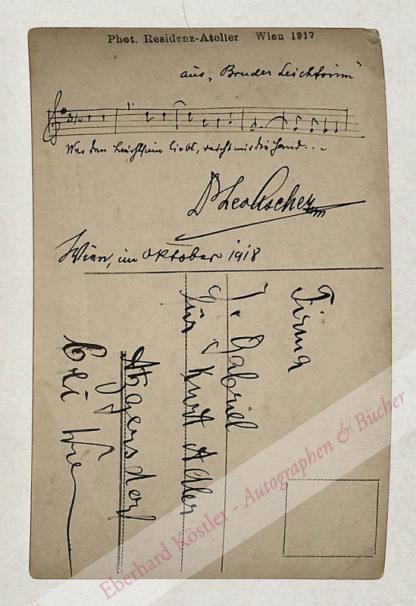 Phot. Residenz-Atelier Wien 1917
aus „Bruder Leichtsinn"
Wer den Leichtsinn liebt, reicht mir die Hand...
Dr Leo Ascher
Wien, im Oktober 1918
Firma
J. Gabriel
für Kurt Adler
Atzgersdorf
bei Wien
Eberhard Köstler - Autographen & Bücher